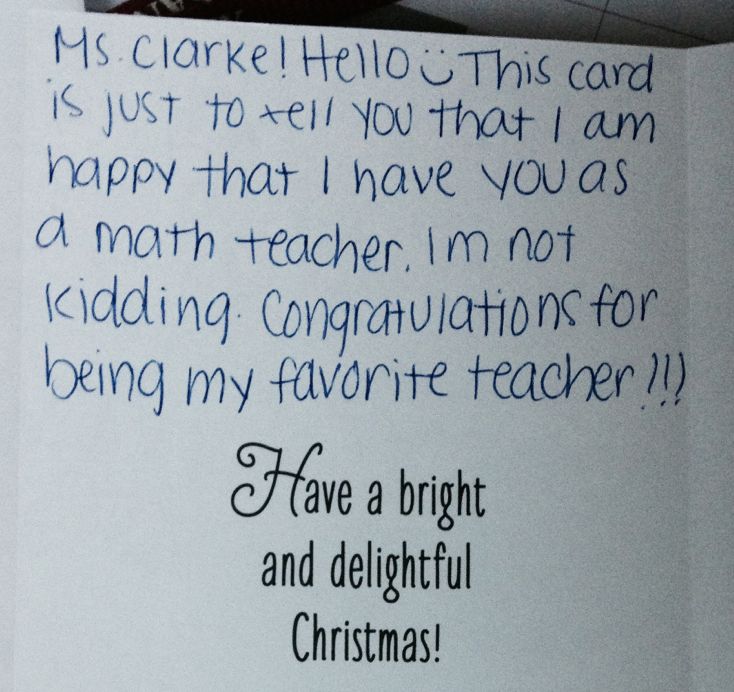 Ms. Clarke! Hello :) This card
is just to tell you that I am
happy that I have you as
a math teacher. Im not
kidding. Congratulations for
being my favorite teacher!!!
Have a bright
and delightful
Christmas!